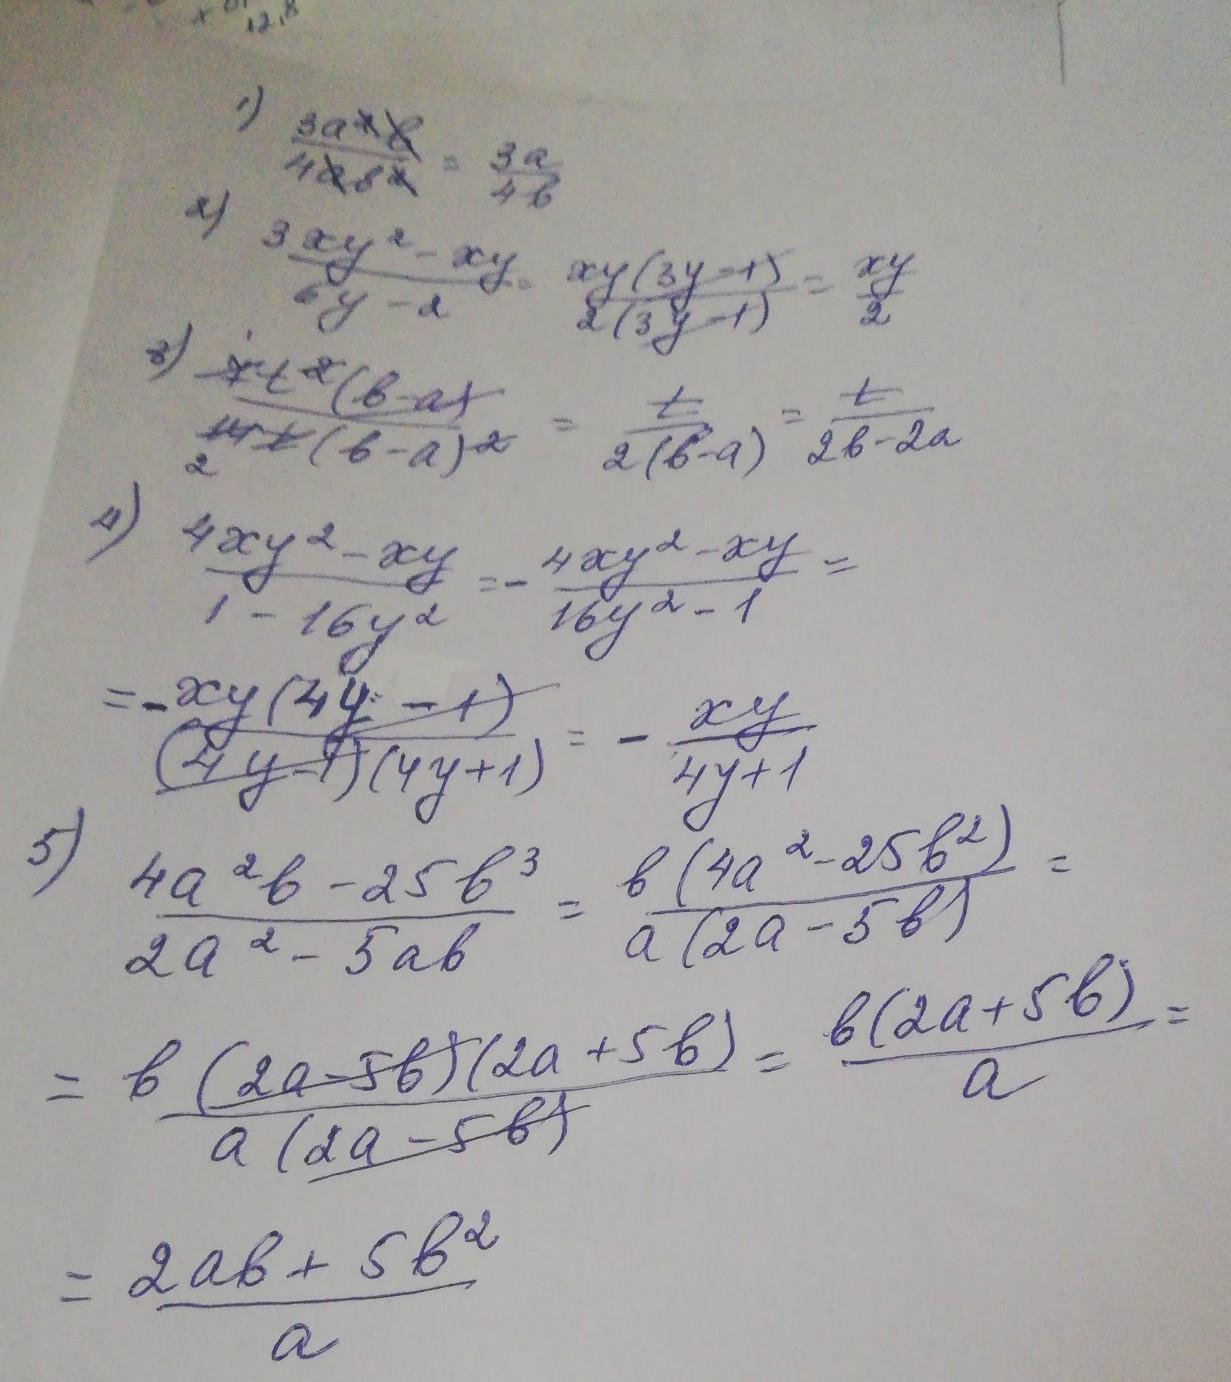 12,8
1) 3a²b/4ab² = 3a/4b
2) 3xy² - xy/6y - 2 = xy(3y-1)/2(3y-1) = xy/2
3) 7t²(b-a)/14t(b-a)² = t/2(b-a) = t/2b-2a
4) 4xy² - xy/1 - 16y² = - 4xy² - xy/16y² - 1 =
= - xy(4y - 1)/(4y-1)(4y+1) = - xy/4y+1
5) 4a²b - 25b³/2a² - 5ab = b(4a² - 25b²)/a(2a - 5b) =
= b(2a-5b)(2a+5b)/a(2a-5b) = b(2a+5b)/a =
= 2ab + 5b²/a